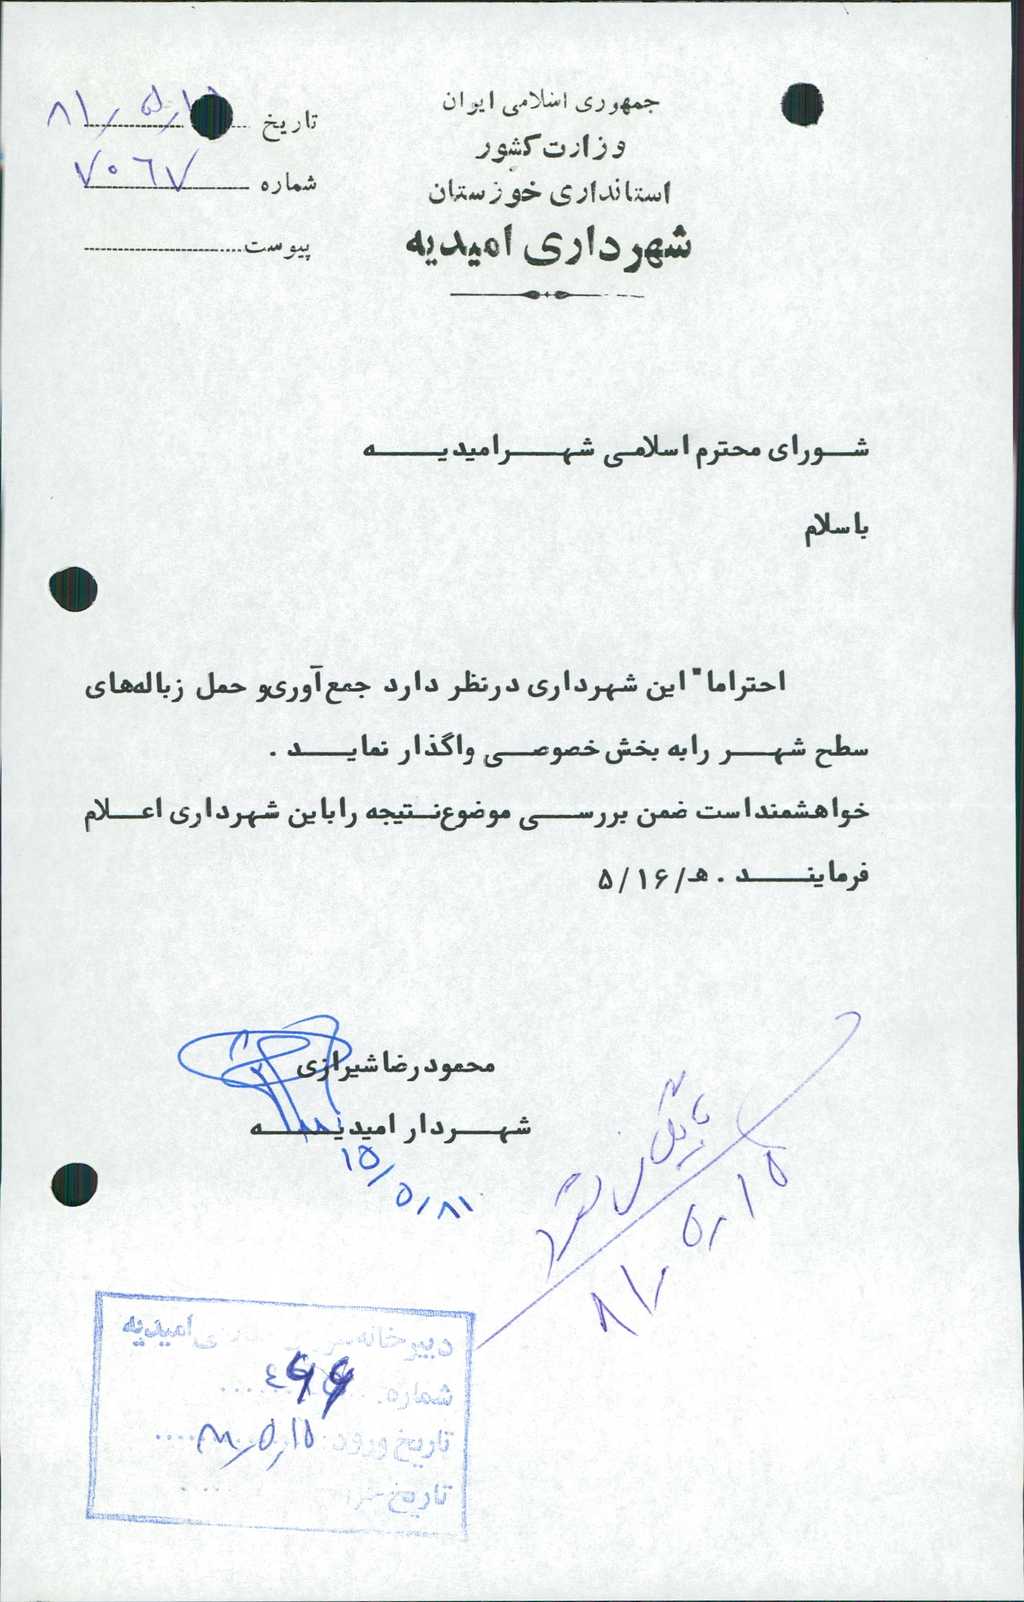 جمهوری اسلامی ایران
وزارت کشور
استانداری خوزستان
شهرداری امیدیه
تاریخ ۸۱/۵/
شماره ۷۰۶۷
پیوست
شورای محترم اسلامی شهر امیدیه
باسلام
احتراما" این شهرداری درنظر دارد جمع‌آوری و حمل زباله‌های
سطح شهر را به بخش خصوصی واگذار نماید .
خواهشمنداست ضمن بررسی موضوع نتیجه را باین شهرداری اعلام
فرمایند . هـ/۵/۱۶
محمود رضا شیرازی
شهردار امیدیه
۱۵/۵/۸۱
۸۱/۵/۱۵
دبیرخانه امیدیه
شماره
تاریخ ورود ۸۱/۵/۱۵
تاریخ